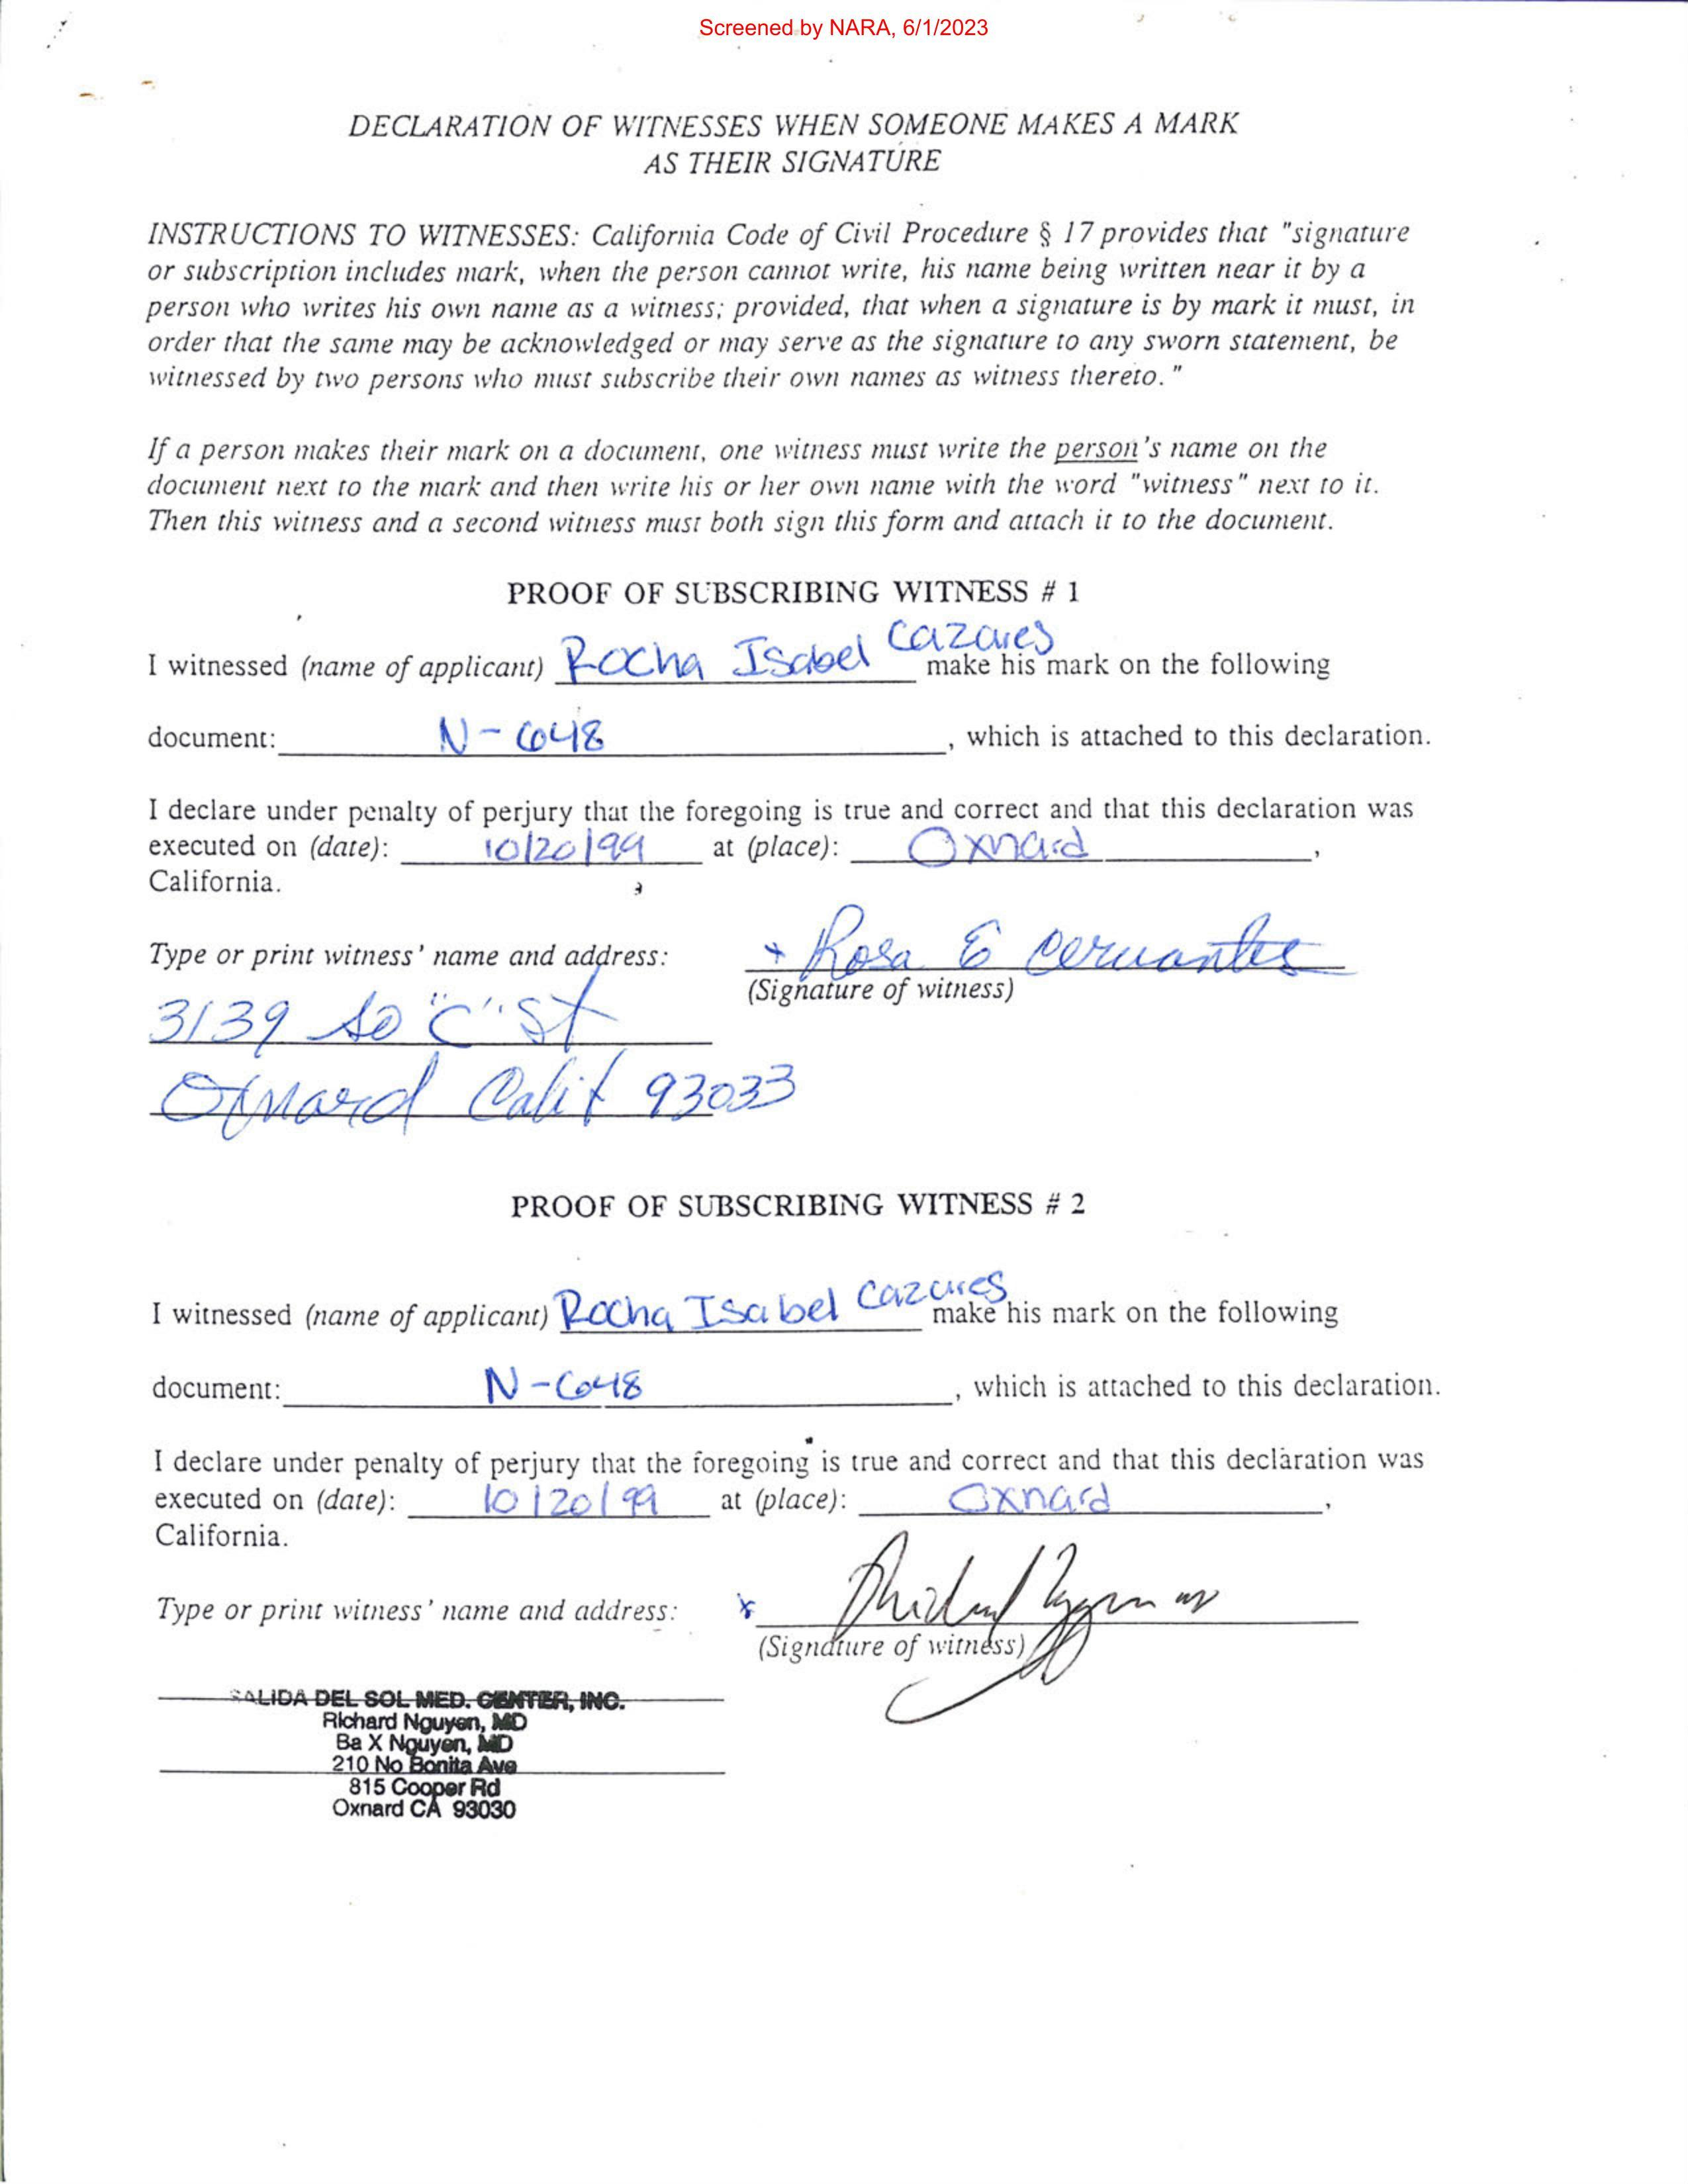 Screened by NARA, 6/1/2023
DECLARATION OF WITNESSES WHEN SOMEONE MAKES A MARK
AS THEIR SIGNATURE
INSTRUCTIONS TO WITNESSES: California Code of Civil Procedure § 17 provides that "signature
or subscription includes mark, when the person cannot write, his name being written near it by a
person who writes his own name as a witness; provided, that when a signature is by mark it must, in
order that the same may be acknowledged or may serve as the signature to any sworn statement, be
witnessed by two persons who must subscribe their own names as witness thereto."
If a person makes their mark on a document, one witness must write the person's name on the
document next to the mark and then write his or her own name with the word "witness" next to it.
Then this witness and a second witness must both sign this form and attach it to the document.
PROOF OF SUBSCRIBING WITNESS # 1
I witnessed (name of applicant) Rocha Isabel Cazares make his mark on the following
document: N-648, which is attached to this declaration.
I declare under penalty of perjury that the foregoing is true and correct and that this declaration was
executed on (date): 10/20/99 at (place): Oxnard,
California.
Type or print witness' name and address: + Rosa E Cervantes
(Signature of witness)
3139 So "C" St
Oxnard Calif 93033
PROOF OF SUBSCRIBING WITNESS # 2
I witnessed (name of applicant) Rocha Isabel Cazares make his mark on the following
document: N-648, which is attached to this declaration.
I declare under penalty of perjury that the foregoing is true and correct and that this declaration was
executed on (date): 10/20/99 at (place): Oxnard,
California.
Type or print witness' name and address: x
(Signature of witness)
SALIDA DEL SOL MED. CENTER, INC.
Richard Nguyen, MD
Ba X Nguyen, MD
210 No Bonita Ave
815 Cooper Rd
Oxnard CA 93030